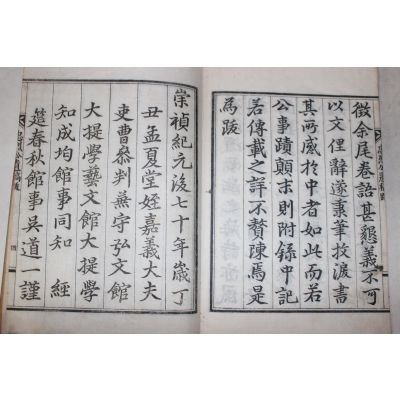 徵余尾卷語甚懇義不可
以文俚辭遂稟筆抆淚書
其所感於中者如此而若
公事蹟顛末則附錄中記
若傳載之詳不贅陳焉是
爲跋
崇禎紀元後七十年歲丁
丑孟夏堂姪嘉義大夫
吏曹叅判兼守弘文館
大提學藝文館大提學
知成均館事同知 經
筵春秋館事吳道一謹